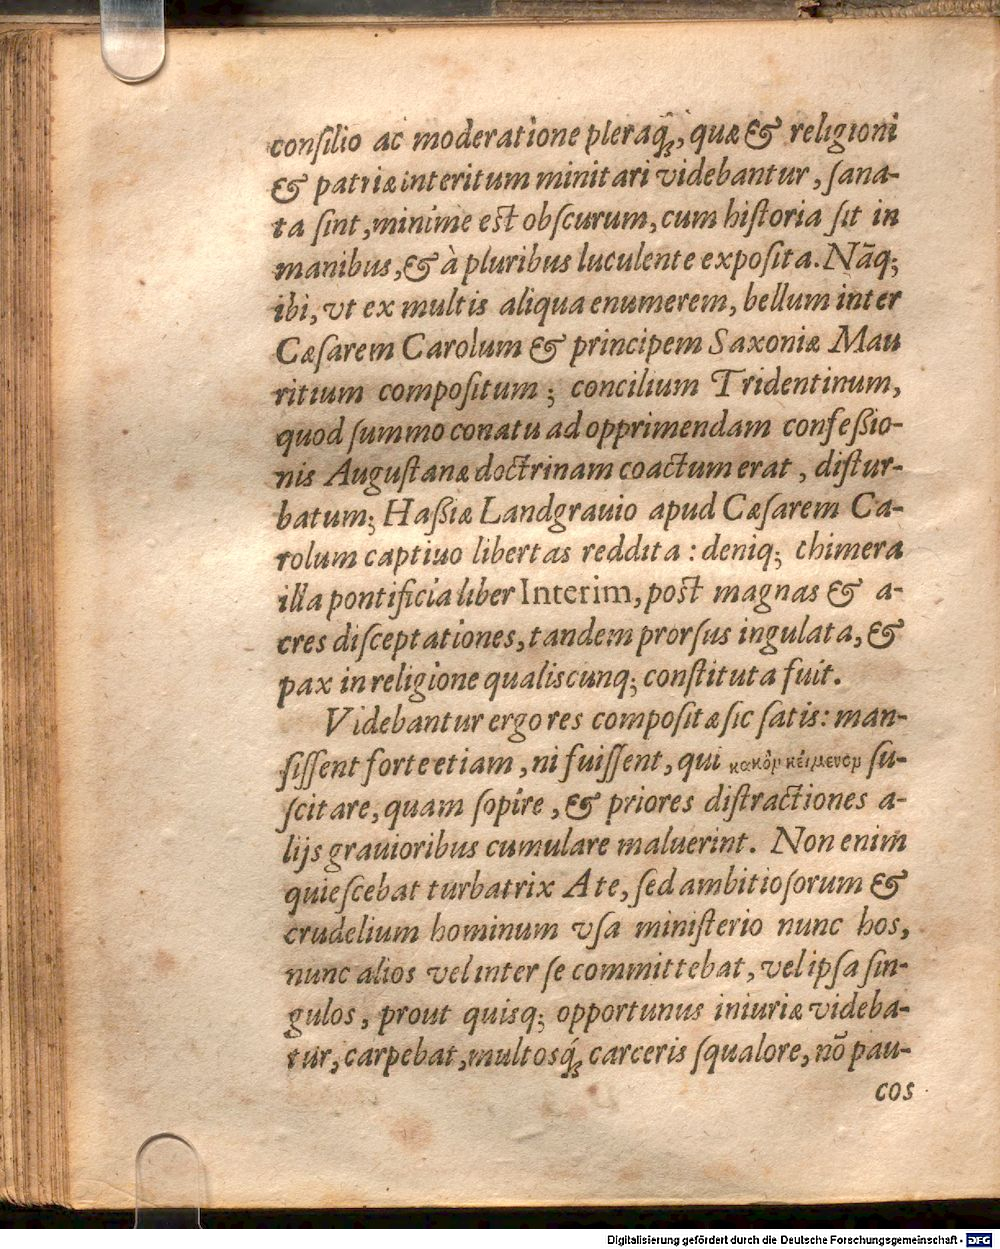 conſilio ac moderatione pleraq́ꝫ, quæ & religioni
& patriæ interitum minitari videbantur, ſana-
ta ſint, minime eſt obſcurum, cum hiſtoria ſit in
manibus, & à pluribus luculente expoſita. Nāq;
ibi, vt ex multis aliqua enumerem, bellum inter
Cæſarem Carolum & principem Saxoniæ Mau
ritium compoſitum; concilium Tridentinum,
quod ſummo conatu ad opprimendam confeßio-
nis Auguſtanæ doctrinam coactum erat, diſtur-
batum; Haßiæ Landgrauio apud Cæſarem Ca-
rolum captiuo libertas reddita: deniq; chimera
illa pontificia liber Interim, poſt magnas & a-
cres diſceptationes, tandem prorſus iugulata, &
pax in religione qualiscunq; conſtituta fuit.
Videbantur ergo res compoſitæ ſic ſatis: man-
ſiſſent forte etiam, ni fuiſſent, qui κακὸν κείμενον ſu-
ſcitare, quam ſopire, & priores diſtractiones a-
lijs grauioribus cumulare maluerint. Non enim
quieſcebat turbatrix Ate, ſed ambitioſorum &
crudelium hominum vſa miniſterio nunc hos,
nunc alios vel inter ſe committebat, vel ipſa ſin-
gulos, prout quisq; opportunus iniuriæ videba-
tur, carpebat, multosq́ꝫ carceris ſqualore, nō pau-
cos
Digitalisierung gefördert durch die Deutsche Forschungsgemeinschaft - DFG